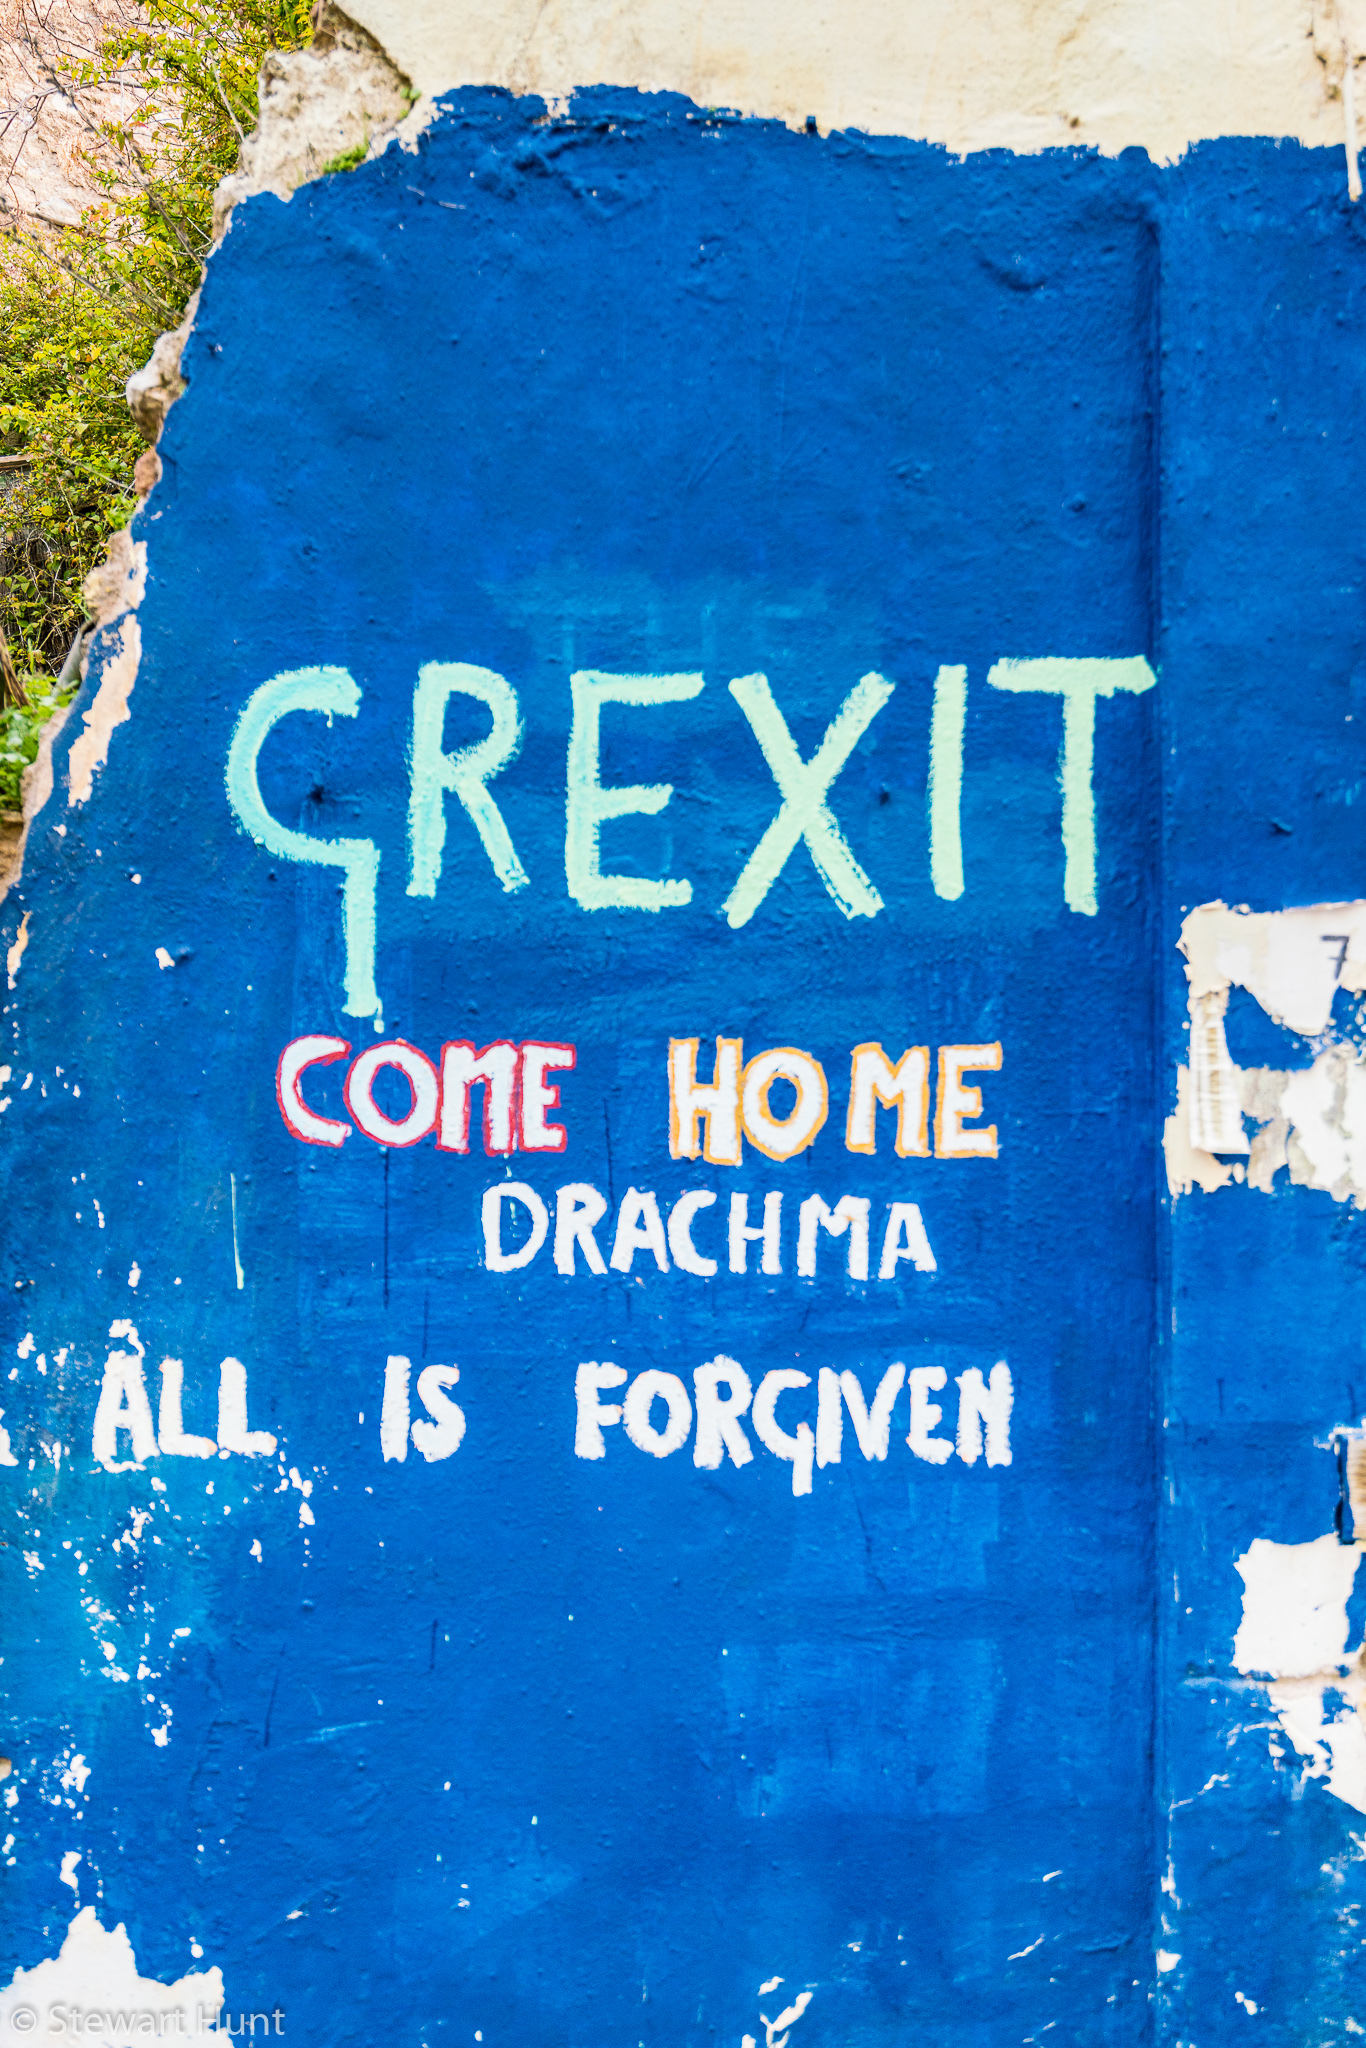 GREXIT
7
COME HOME
DRACHMA
ALL IS FORGIVEN
© Stewart Hunt